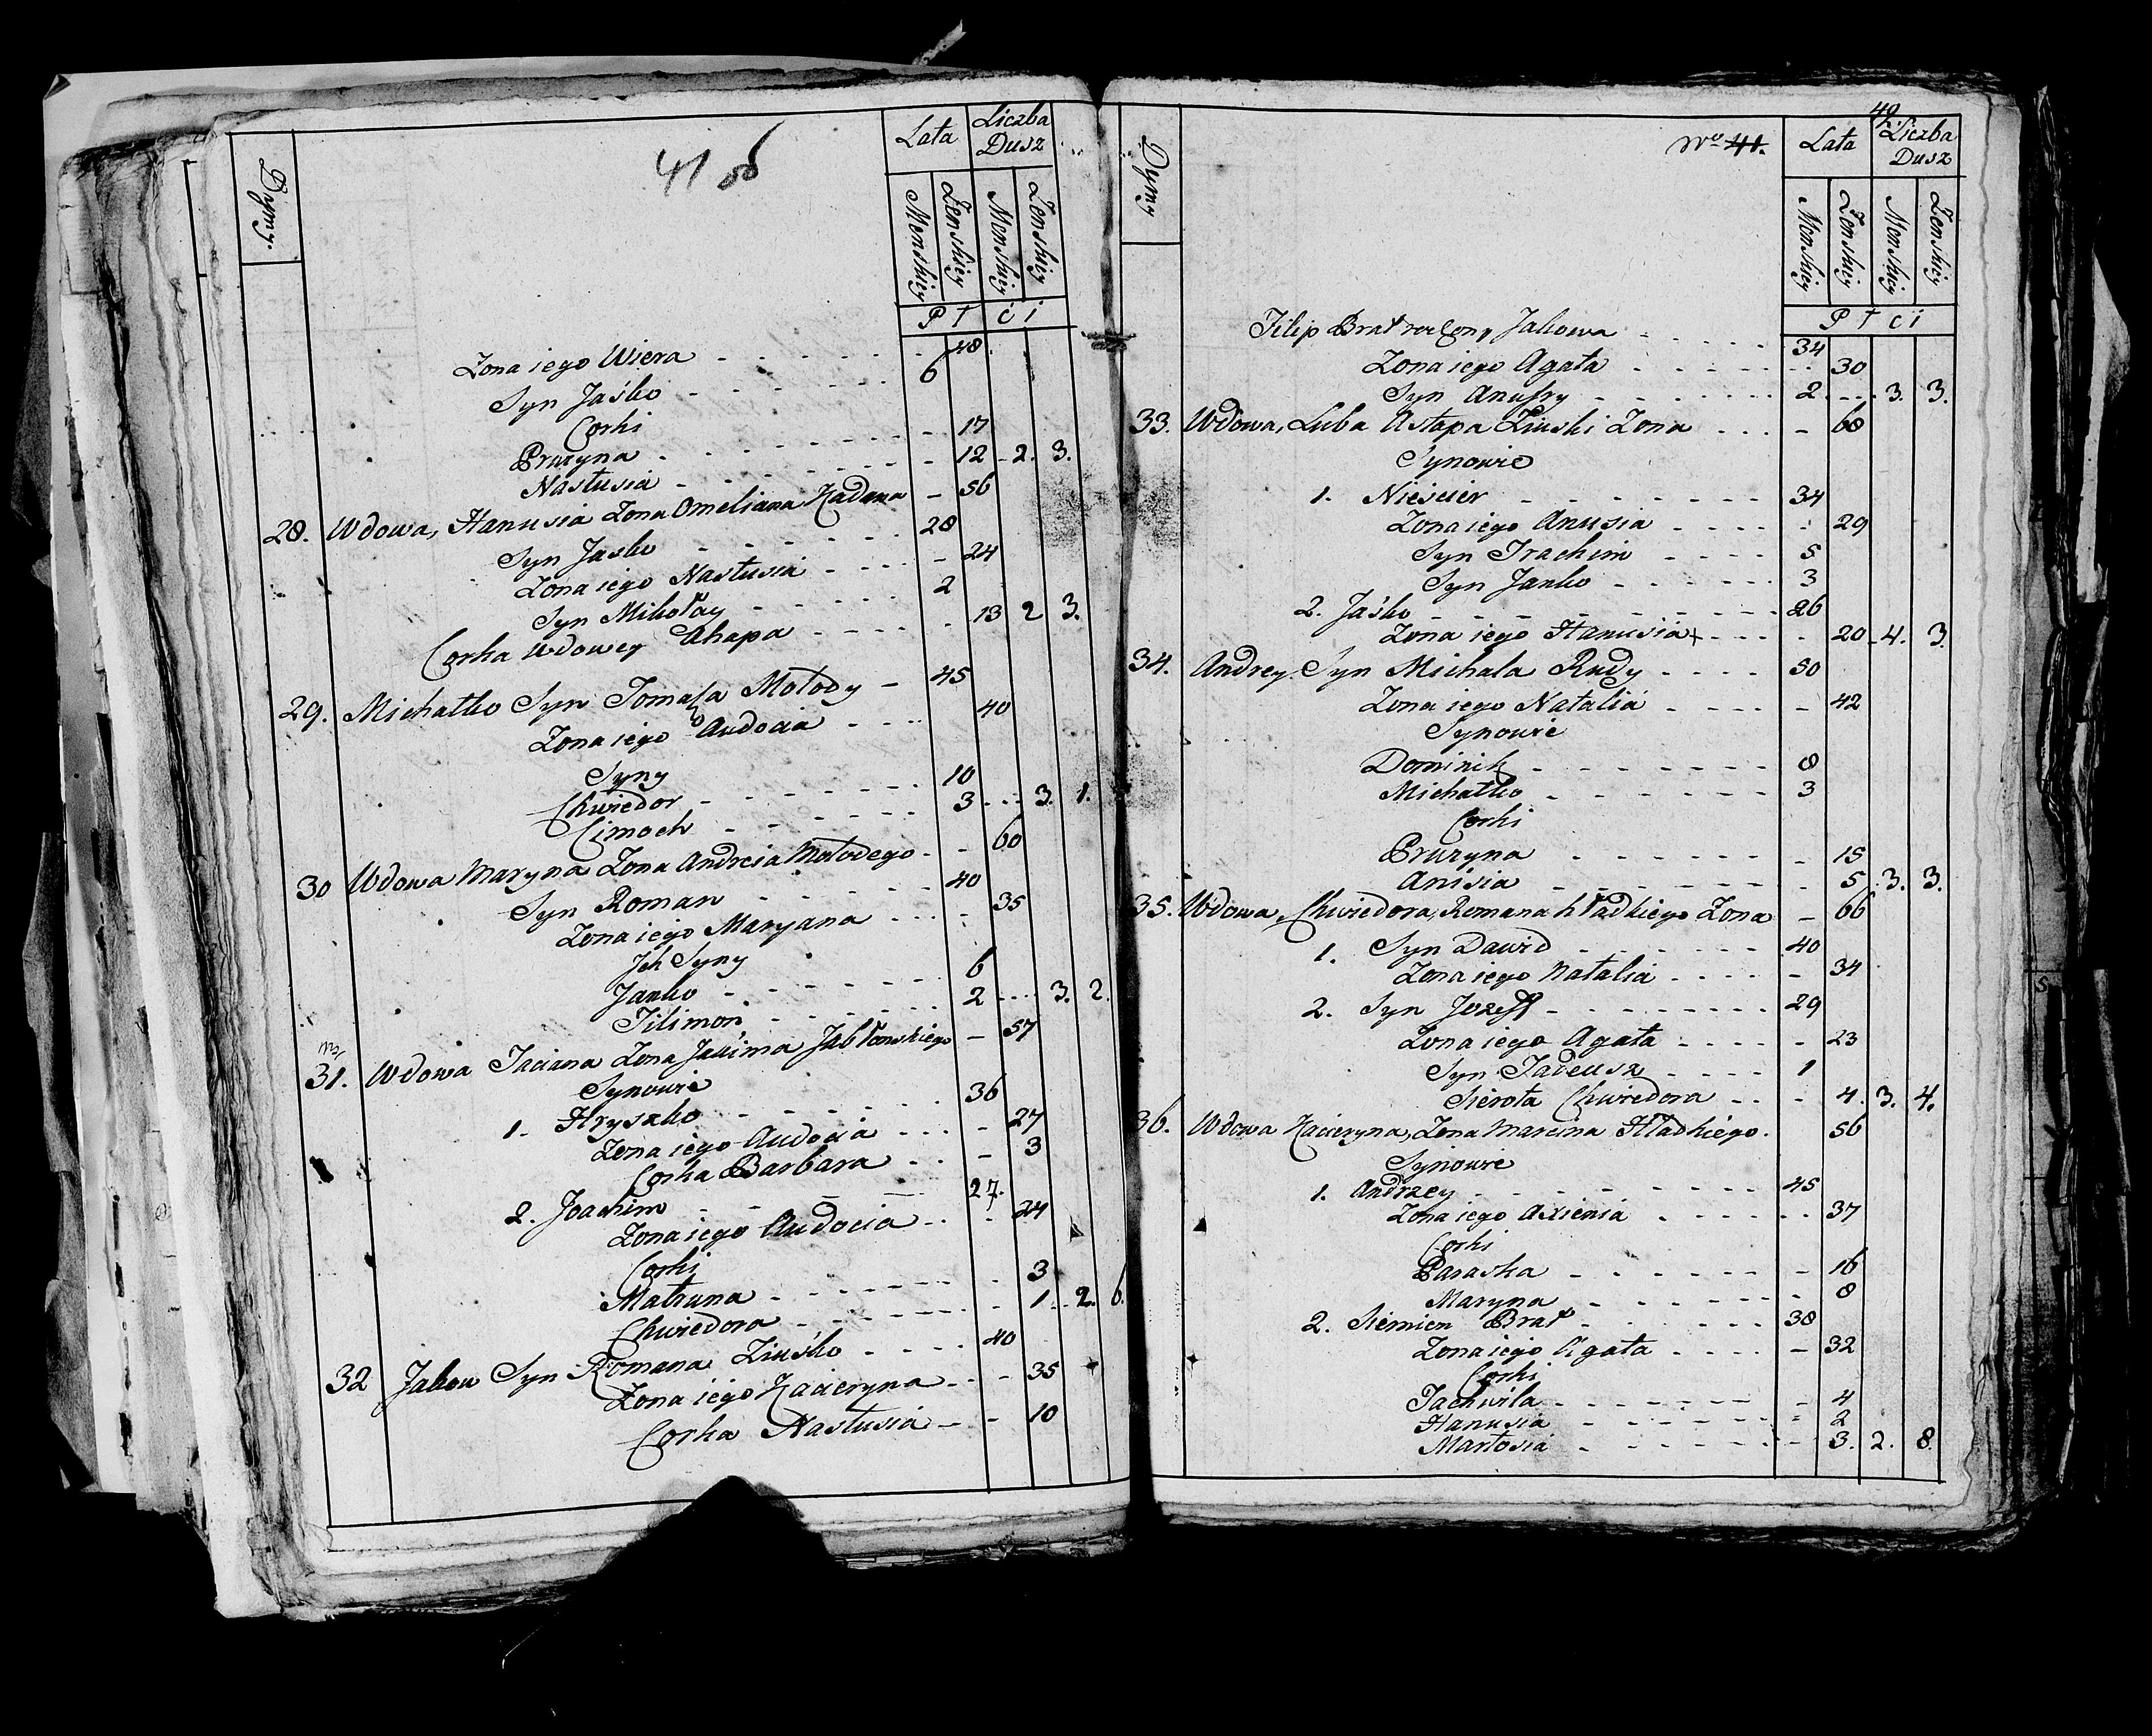 41 об
Dymy.
Lata
Liczba Dusz
Męnskiey Zenskiey Męnskiey Zenskiey
P ł c i
Zona iego Wiera - - - 48.
Syn Jaśko - - - 6
Corki
Pruzyna - - - 17
Nastusia - - - 12 - 2. 3.
28. Wdowa, Hanusia Zona Omeliana - 56
Syn Jasko - - - 28
Zona iego Nastusia - - - 24
Syn Mikołay - - - 2
Corka Wdowey Ahapa - - - 13 2 3.
29. Michałko Syn Tomasza Mołody - 45
Zona iego Audocia - - - 40
Syny
Chwiedor - - - 10
Cimoch - - - 3 - - - 3. 1.
30 Wdowa Maryna Zona Andreia Mołodego - - 60
Syn Roman - - - 40
Zona iego Maryana - - - 35
Jch Syny
Janko - - - 6
Filimon - - - 2 - - - 3. 2.
31. Wdowa Taciana Zona Jakima Jabłonskiego - 57
Synowie
1. Hryszko - - - 36
Zona iego Audocia - - - 27
Corka Barbara - - - 3
2. Joachim - - - 27.
Zona iego Audocia - - - 24
Corki
Matruna - - - 3
Chwiedora - - - 1 - - 2. 6.
32 Jakow Syn Romana Ziuśko - - - 40
Zona iego Kacieryna - - - 35
Corka Nastusia - - - 10
Dymy
No 41.
42
Lata
Liczba Dusz
Męnskiey Zenskiey Męnskiey Zenskiey
P ł c i
Filip Brat rodzony Jakowa - - - 34
Zona iego Agata - - - 30
Syn Anufry - - - 2 - - - 3. 3.
33. Wdowa, Luba Astapa Ziuski Zona - - - 68
Synowie
1. Nieścier - - - 34
Zona iego Anusia - - - 29
Syn Trachim - - - 5
Syn Janko - - - 3
2. Jaśko - - - 26
Zona iego Hanusia - - - 20 - 4. 3.
34. Andrey Syn Michala Rudy - - - 50
Zona iego Natalia - - - 42
Synowie
Dominik - - - 8
Michałko - - - 3
Corki
Pruzyna - - - 15
Anisia - - - 5 . 3. 3.
35. Wdowa, Chwiedora, Romana hładkiego Zona - 66
1. Syn Dawid - - - 40
Zona iego Natalia - - - 34
2. Syn Jozeff - - - 29
Zona iego Agata - - - 23
Syn Tadeusz - - - 1
Sierota Chwiedora - - - 4. 3. 4.
36. Wdowa Kacieryna, Zona Marcina Hładkiego. 56
Synowie
1. Andrzey - - - 45
Zona iego Axienia - - - 37
Corki
Paraska - - - 16
Maryna - - - 8
2. Siemien Brat - - - 38
Zona iego Agata - - - 32
Corki
Jachwila - - - 4
Hanusia - - - 2
Martosia - - - 3. 2. 8.